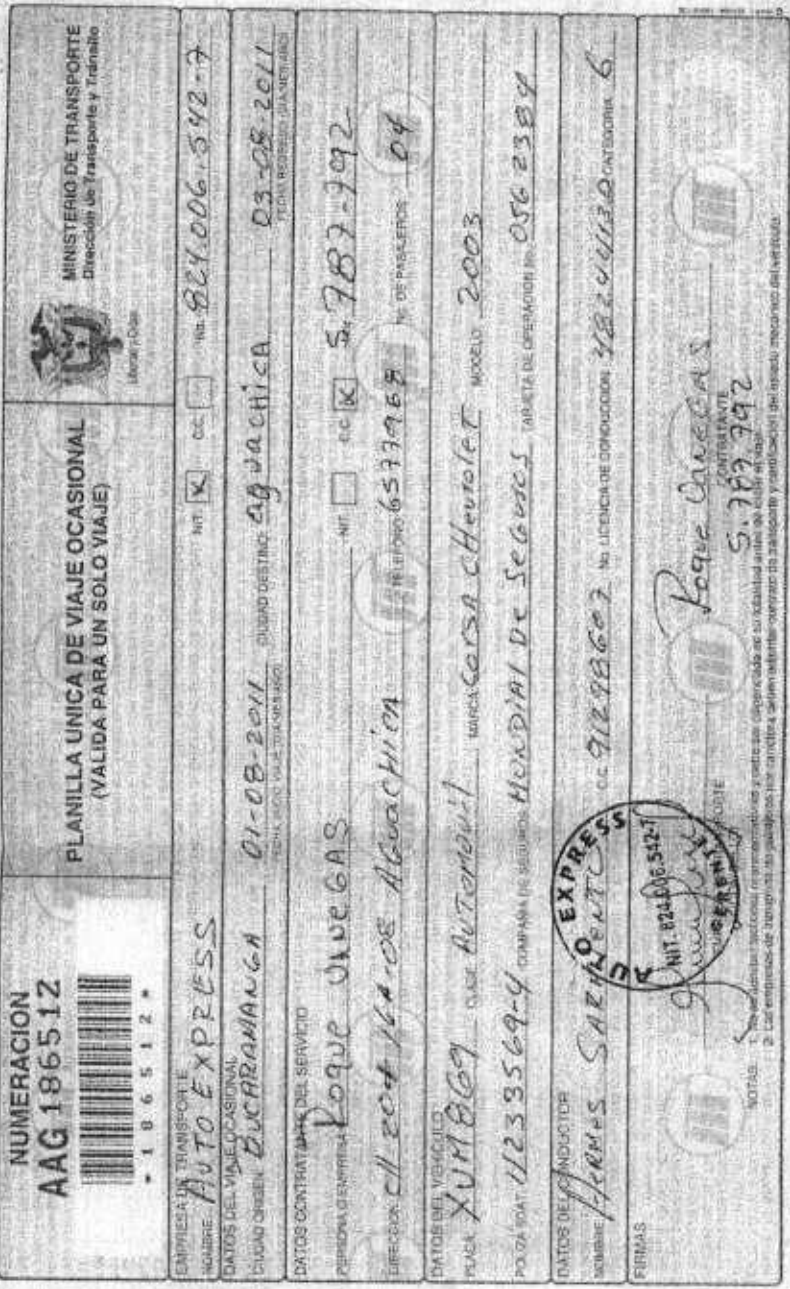 NUMERACION
AAG 186512
* 186512 *
PLANILLA UNICA DE VIAJE OCASIONAL
(VALIDA PARA UN SOLO VIAJE)
Libertad y Orden
MINISTERIO DE TRANSPORTE
Dirección de Transporte y Tránsito
EMPRESA DE TRANSPORTE
NOMBRE: AUTO EXPRESS NIT. X CC No. 824.006.542-7
DATOS DEL VIAJE OCASIONAL
CIUDAD ORIGEN: BUCARAMANGA 01-08-2011 CIUDAD DESTINO: aguachica 03-08-2011
DATOS CONTRATANTE DEL SERVICIO
PERSONA O EMPRESA: Roque VANEGAS NIT. C.C. X No. 5.787.792
DIRECCION: Cll 20# 16A-08 AGuachica TELEFONO: 6577968 No. DE PASAJEROS 04
DATOS DEL VEHICULO
PLACA: XUM869 CLASE: AUTOMOVIL MARCA: CorsA CHevrolet MODELO: 2003
POLIZA SOAT: 11233569-4 COMPAÑIA DE SEGUROS: MUNDIAL De Seguros TARJETA DE OPERACION No. 0562384
DATOS DEL CONDUCTOR
NOMBRE: Hermes SARMIENTO C.C. 91298607 No. LICENCIA DE CONDUCCION: CATEGORIA 6
FIRMAS
AUTO EXPRESS
NIT. 824.006.542-7
GERENTE
Roque Vanegas
CONTRATANTE
5.787.792
NOTAS: